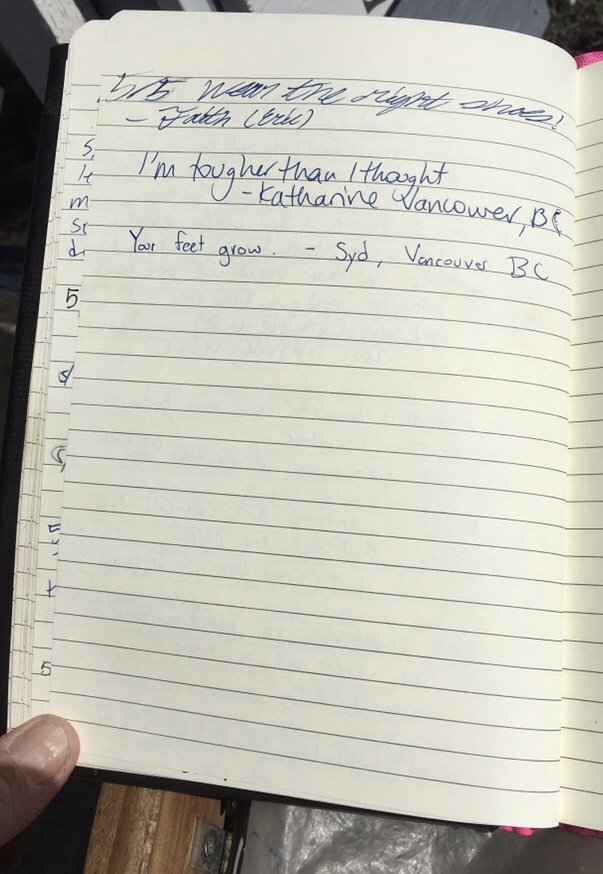 5/5 Wear the right shoes!
- Faith (Eric)
I'm tougher than I thought
- Katharine Vancouver, BC
Your feet grow. - Syd, Vancouver BC
5
5